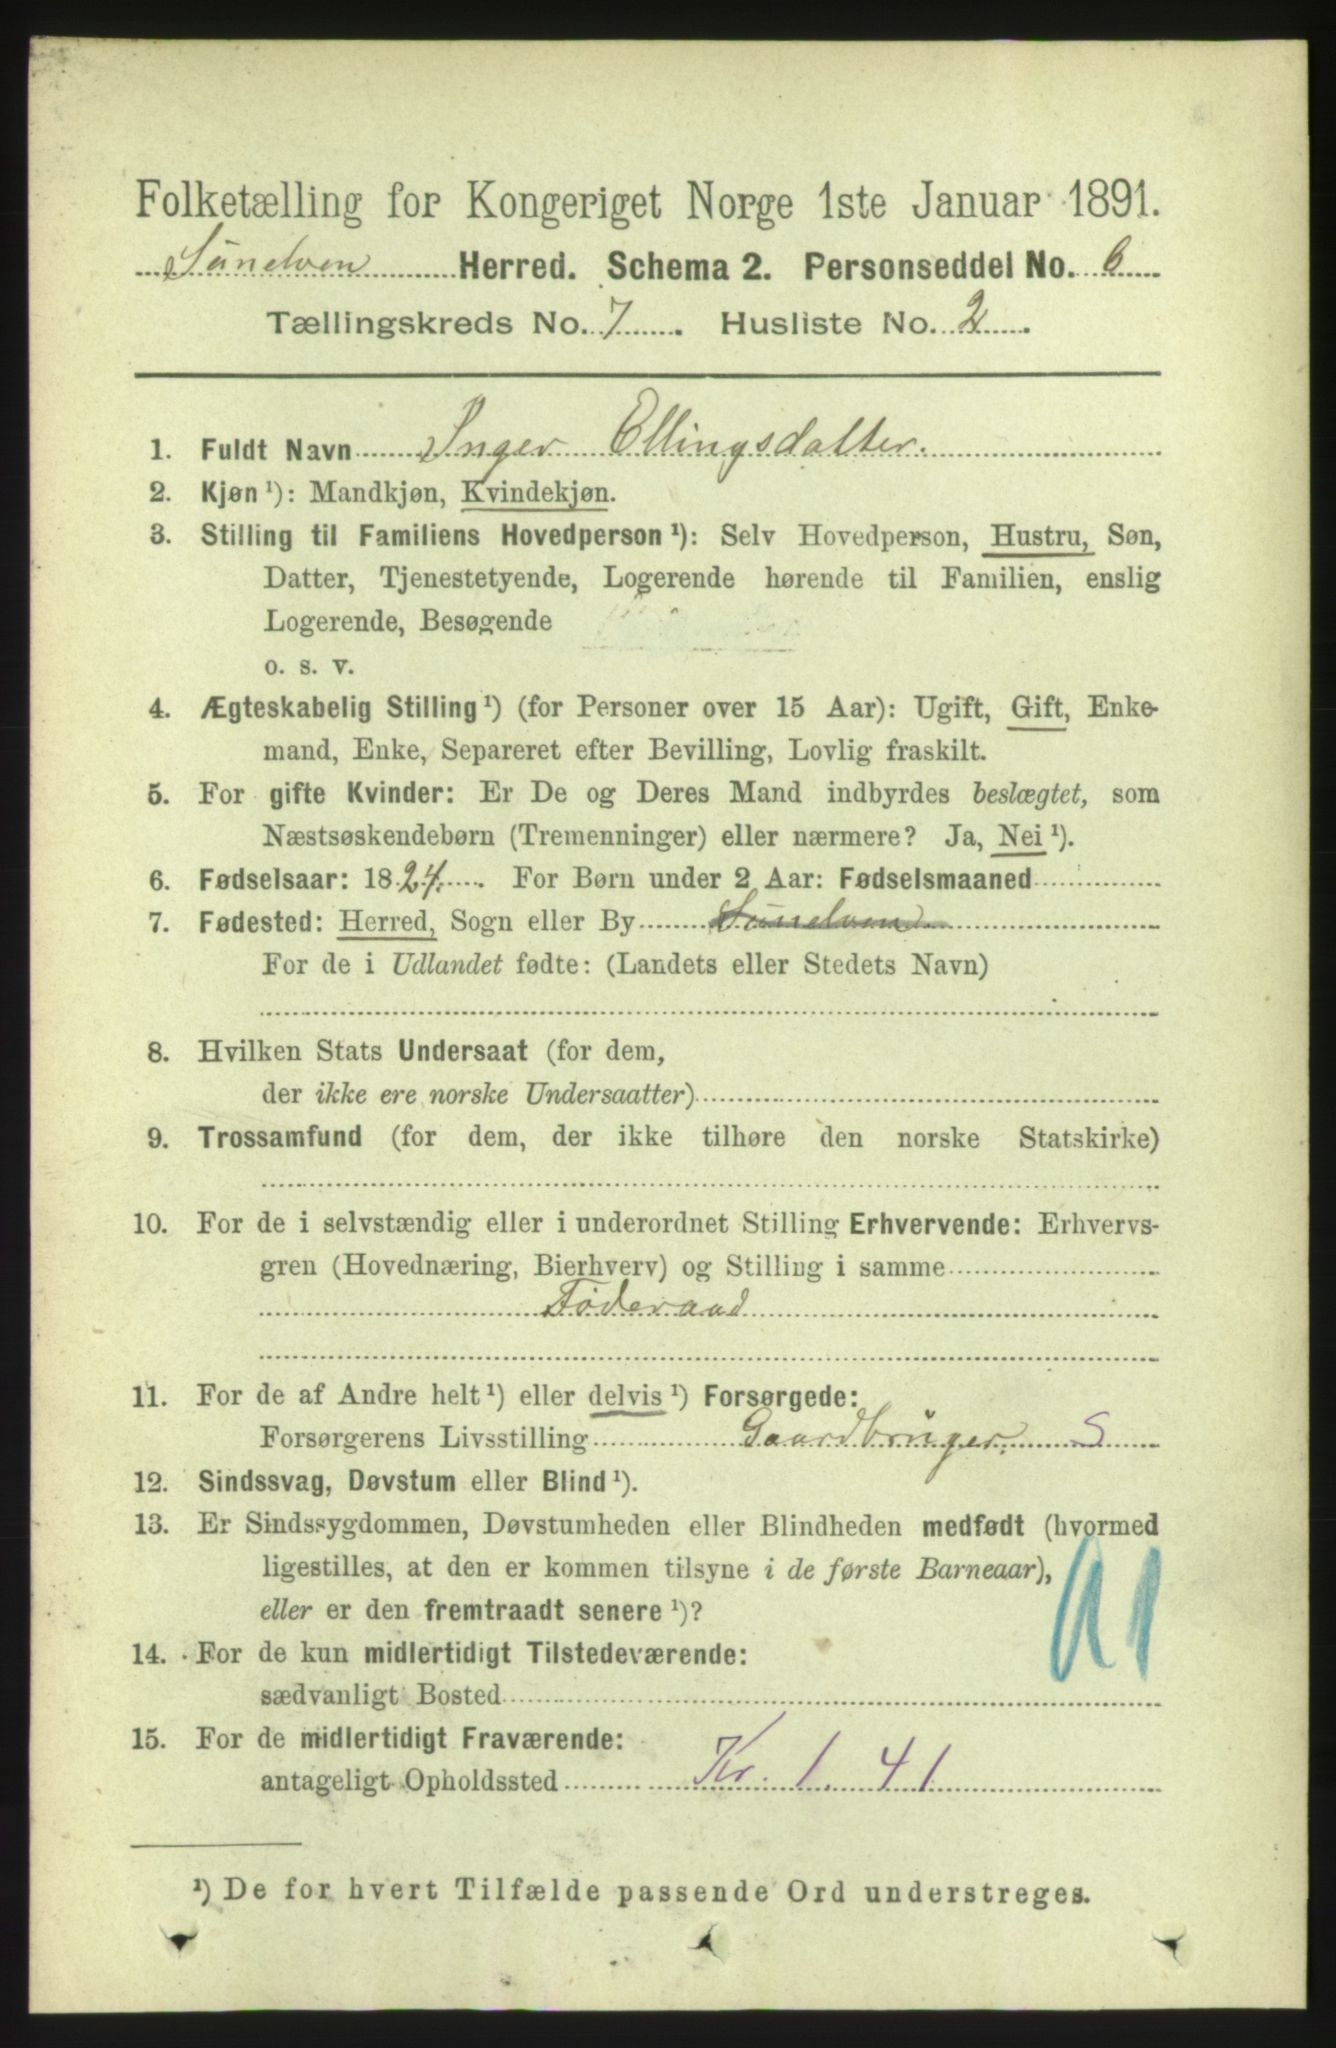 Folketælling for Kongeriget Norge 1ste Januar 1891.
Sünelven Herred. Schema 2. Personseddel No. 6
Tællingskreds No. 7. Husliste No. 2.
1. Fuldt Navn Inger Ellingsdatter.
2. Kjøn ¹): Mandkjøn, Kvindekjøn.
3. Stilling til Familiens Hovedperson ¹): Selv Hovedperson, Hustru, Søn,
Datter, Tjenestetyende, Logerende hørende til Familien, enslig
Logerende, Besøgende
o. s. v.
4. Ægteskabelig Stilling ¹) (for Personer over 15 Aar): Ugift, Gift, Enke-
mand, Enke, Separeret efter Bevilling, Lovlig fraskilt.
5. For gifte Kvinder: Er De og Deres Mand indbyrdes beslægtet, som
Næstsøskendebørn (Tremenninger) eller nærmere? Ja, Nei ¹).
6. Fødselsaar: 1824. For Børn under 2 Aar: Fødselsmaaned
7. Fødested: Herred, Sogn eller By Sünelven
For de i Udlandet fødte: (Landets eller Stedets Navn)
8. Hvilken Stats Undersaat (for dem,
der ikke ere norske Undersaatter)
9. Trossamfund (for dem, der ikke tilhøre den norske Statskirke)
10. For de i selvstændig eller i underordnet Stilling Erhvervende: Erhvervs-
gren (Hovednæring, Bierhverv) og Stilling i samme
Föderaad
11. For de af Andre helt ¹) eller delvis ¹) Forsørgede:
Forsørgerens Livsstilling Gaardbrüger. S
12. Sindssvag, Døvstum eller Blind ¹).
13. Er Sindssygdommen, Døvstumheden eller Blindheden medfødt (hvormed
ligestilles, at den er kommen tilsyne i de første Barneaar),
eller er den fremtraadt senere ¹)?
14. For de kun midlertidigt Tilstedeværende:
sædvanligt Bosted
15. For de midlertidigt Fraværende:
antageligt Opholdssted Kr. 1. 41
¹) De for hvert Tilfælde passende Ord understreges.